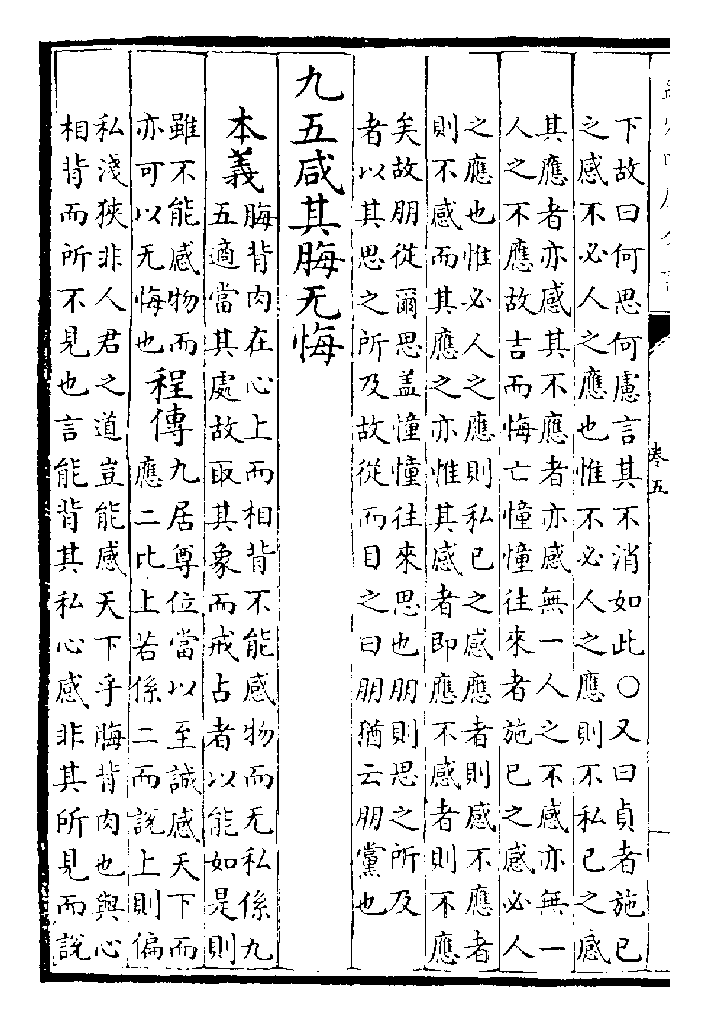 卷五
下故曰何思何慮言其不消如此○又曰貞者施已
之感不必人之應也惟不必人之應則不私已之感
其應者亦感其不應者亦感無一人之不感亦無一
人之不應故吉而悔亡憧憧往來者施已之感必人
之應也惟必人之應則私已之感應者則感不應者
則不感而其應之亦惟其感者即應不感者則不應
矣故朋從爾思盖憧憧往來思也朋則思之所及
者以其思之所及故從而目之曰朋猶云朋黨也
九五咸其脢无悔
本義
脢背肉在心上而相背不能感物而无私係九
五適當其處故取其象而戒占者以能如是則
雖不能感物而
亦可以无悔也
程傳
九居尊位當以至誠感天下而
應二比上若係二而說上則偏
私淺狹非人君之道豈能感天下乎脢背肉也與心
相背而所不見也言能背其私心感非其所見而說